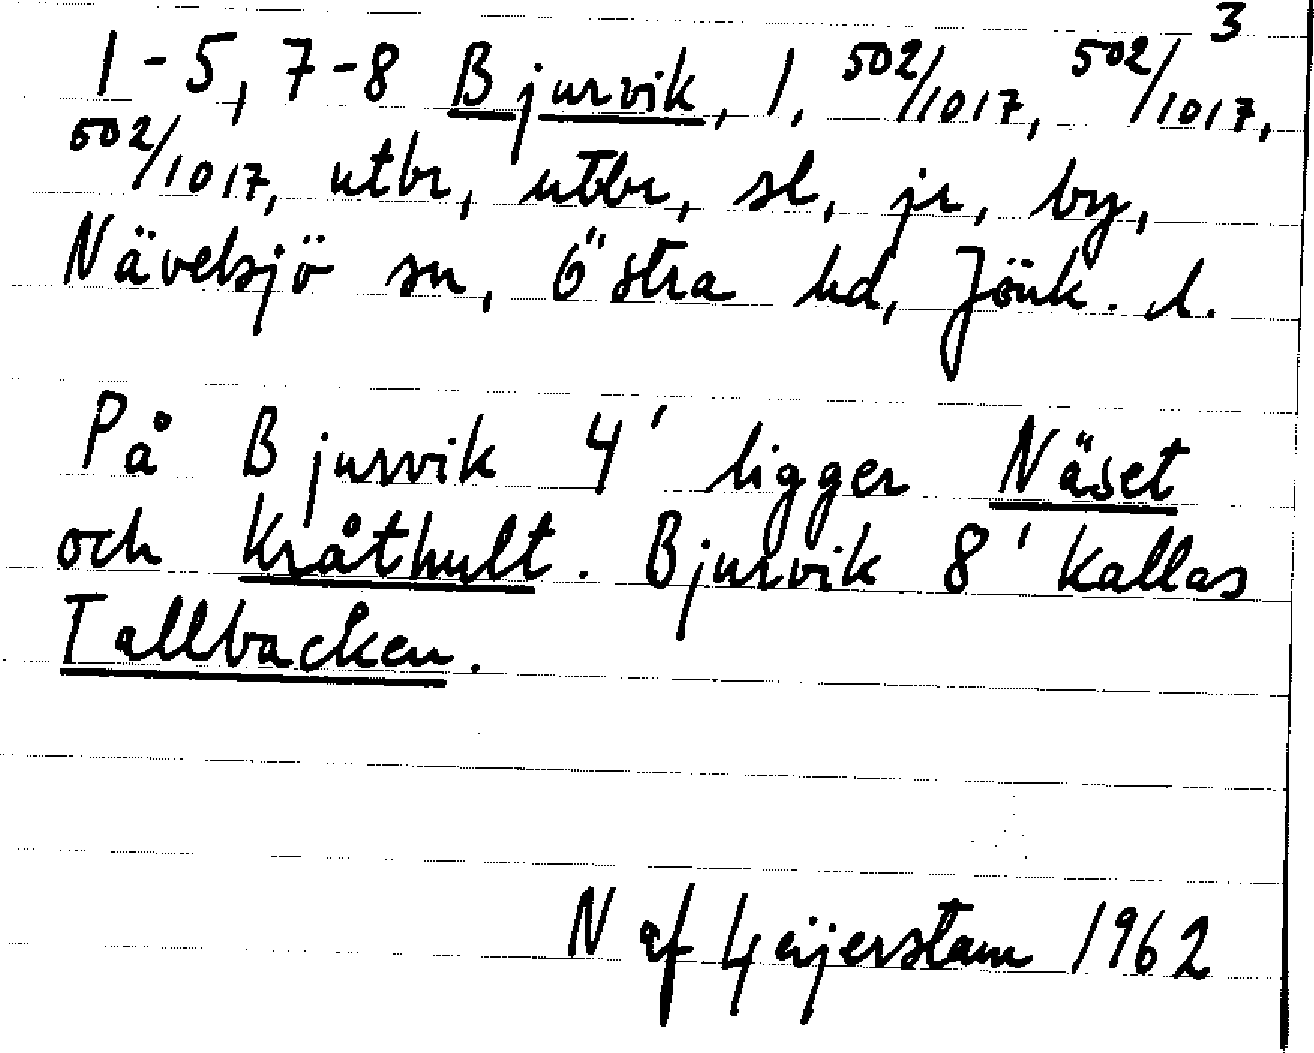 3
1-5, 7-8 Bjurvik, 1, 502/1017, 502/1017,
502/1017, utbr, utbr, sl, jr, by,
Nävelsjö sn, Östra hd, Jönk. l.
På Bjurvik 4' ligger Näset
och Kråthult. Bjurvik 8' kallas
Tallbacken.
N af Geijerstam 1962